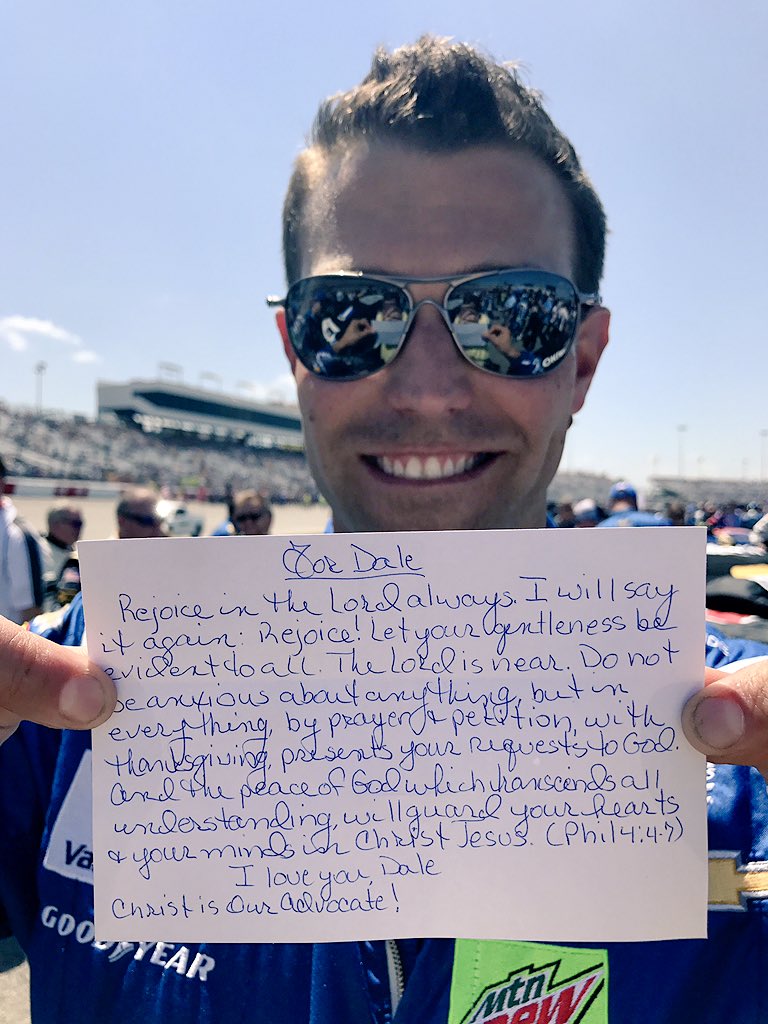 For Dale
Rejoice in the Lord always. I will say
it again: Rejoice! Let your gentleness be
evident to all. The Lord is near. Do not
be anxious about anything, but in
everything, by prayer & petition, with
thanksgiving, presents your requests to God.
And the peace of God which transcends all
understanding, will guard your hearts
& your minds in Christ Jesus. (Phil 4:4-7)
I love you, Dale
Christ is Our Advocate!
Va
GOODYEAR
Mtn
DEW